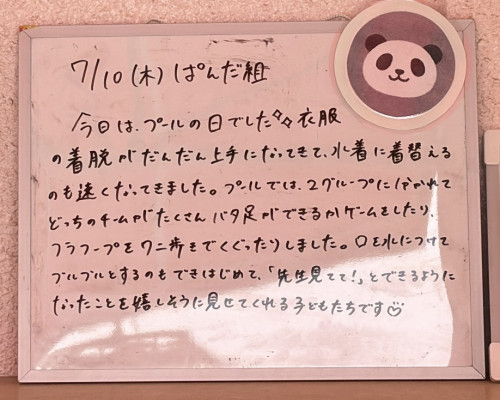 7/10(木) ぱんだ組
今日は、プールの日でした✧✧衣服
の着脱がだんだん上手になってきて、水着に着替える
のも速くなってきました。プールでは、2グループに分かれて
どっちのチームがたくさんバタ足ができるかゲームをしたり、
フラフープをワニ歩きでくぐったりしました。口を水につけて
ブルブルとするのもできはじめて、「先生見てて!」とできるように
なったことを嬉しそうに見せてくれる子どもたちです♡